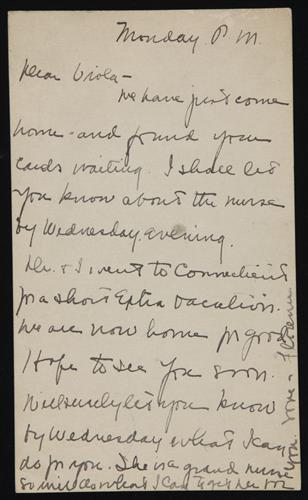 Monday P.M.
Dear Viola -
We have just come
home - and found your
cards waiting. I shall let
you know about the nurse
by Wednesday evening.
Dr. & I went to Connecticut
for a short extra vacation.
We are now home for good
Hope to see you soon.
Will surely let you know
by Wednesday what I can
do for you. She is a grand nurse
so will do what I can to get her for
you. Love -